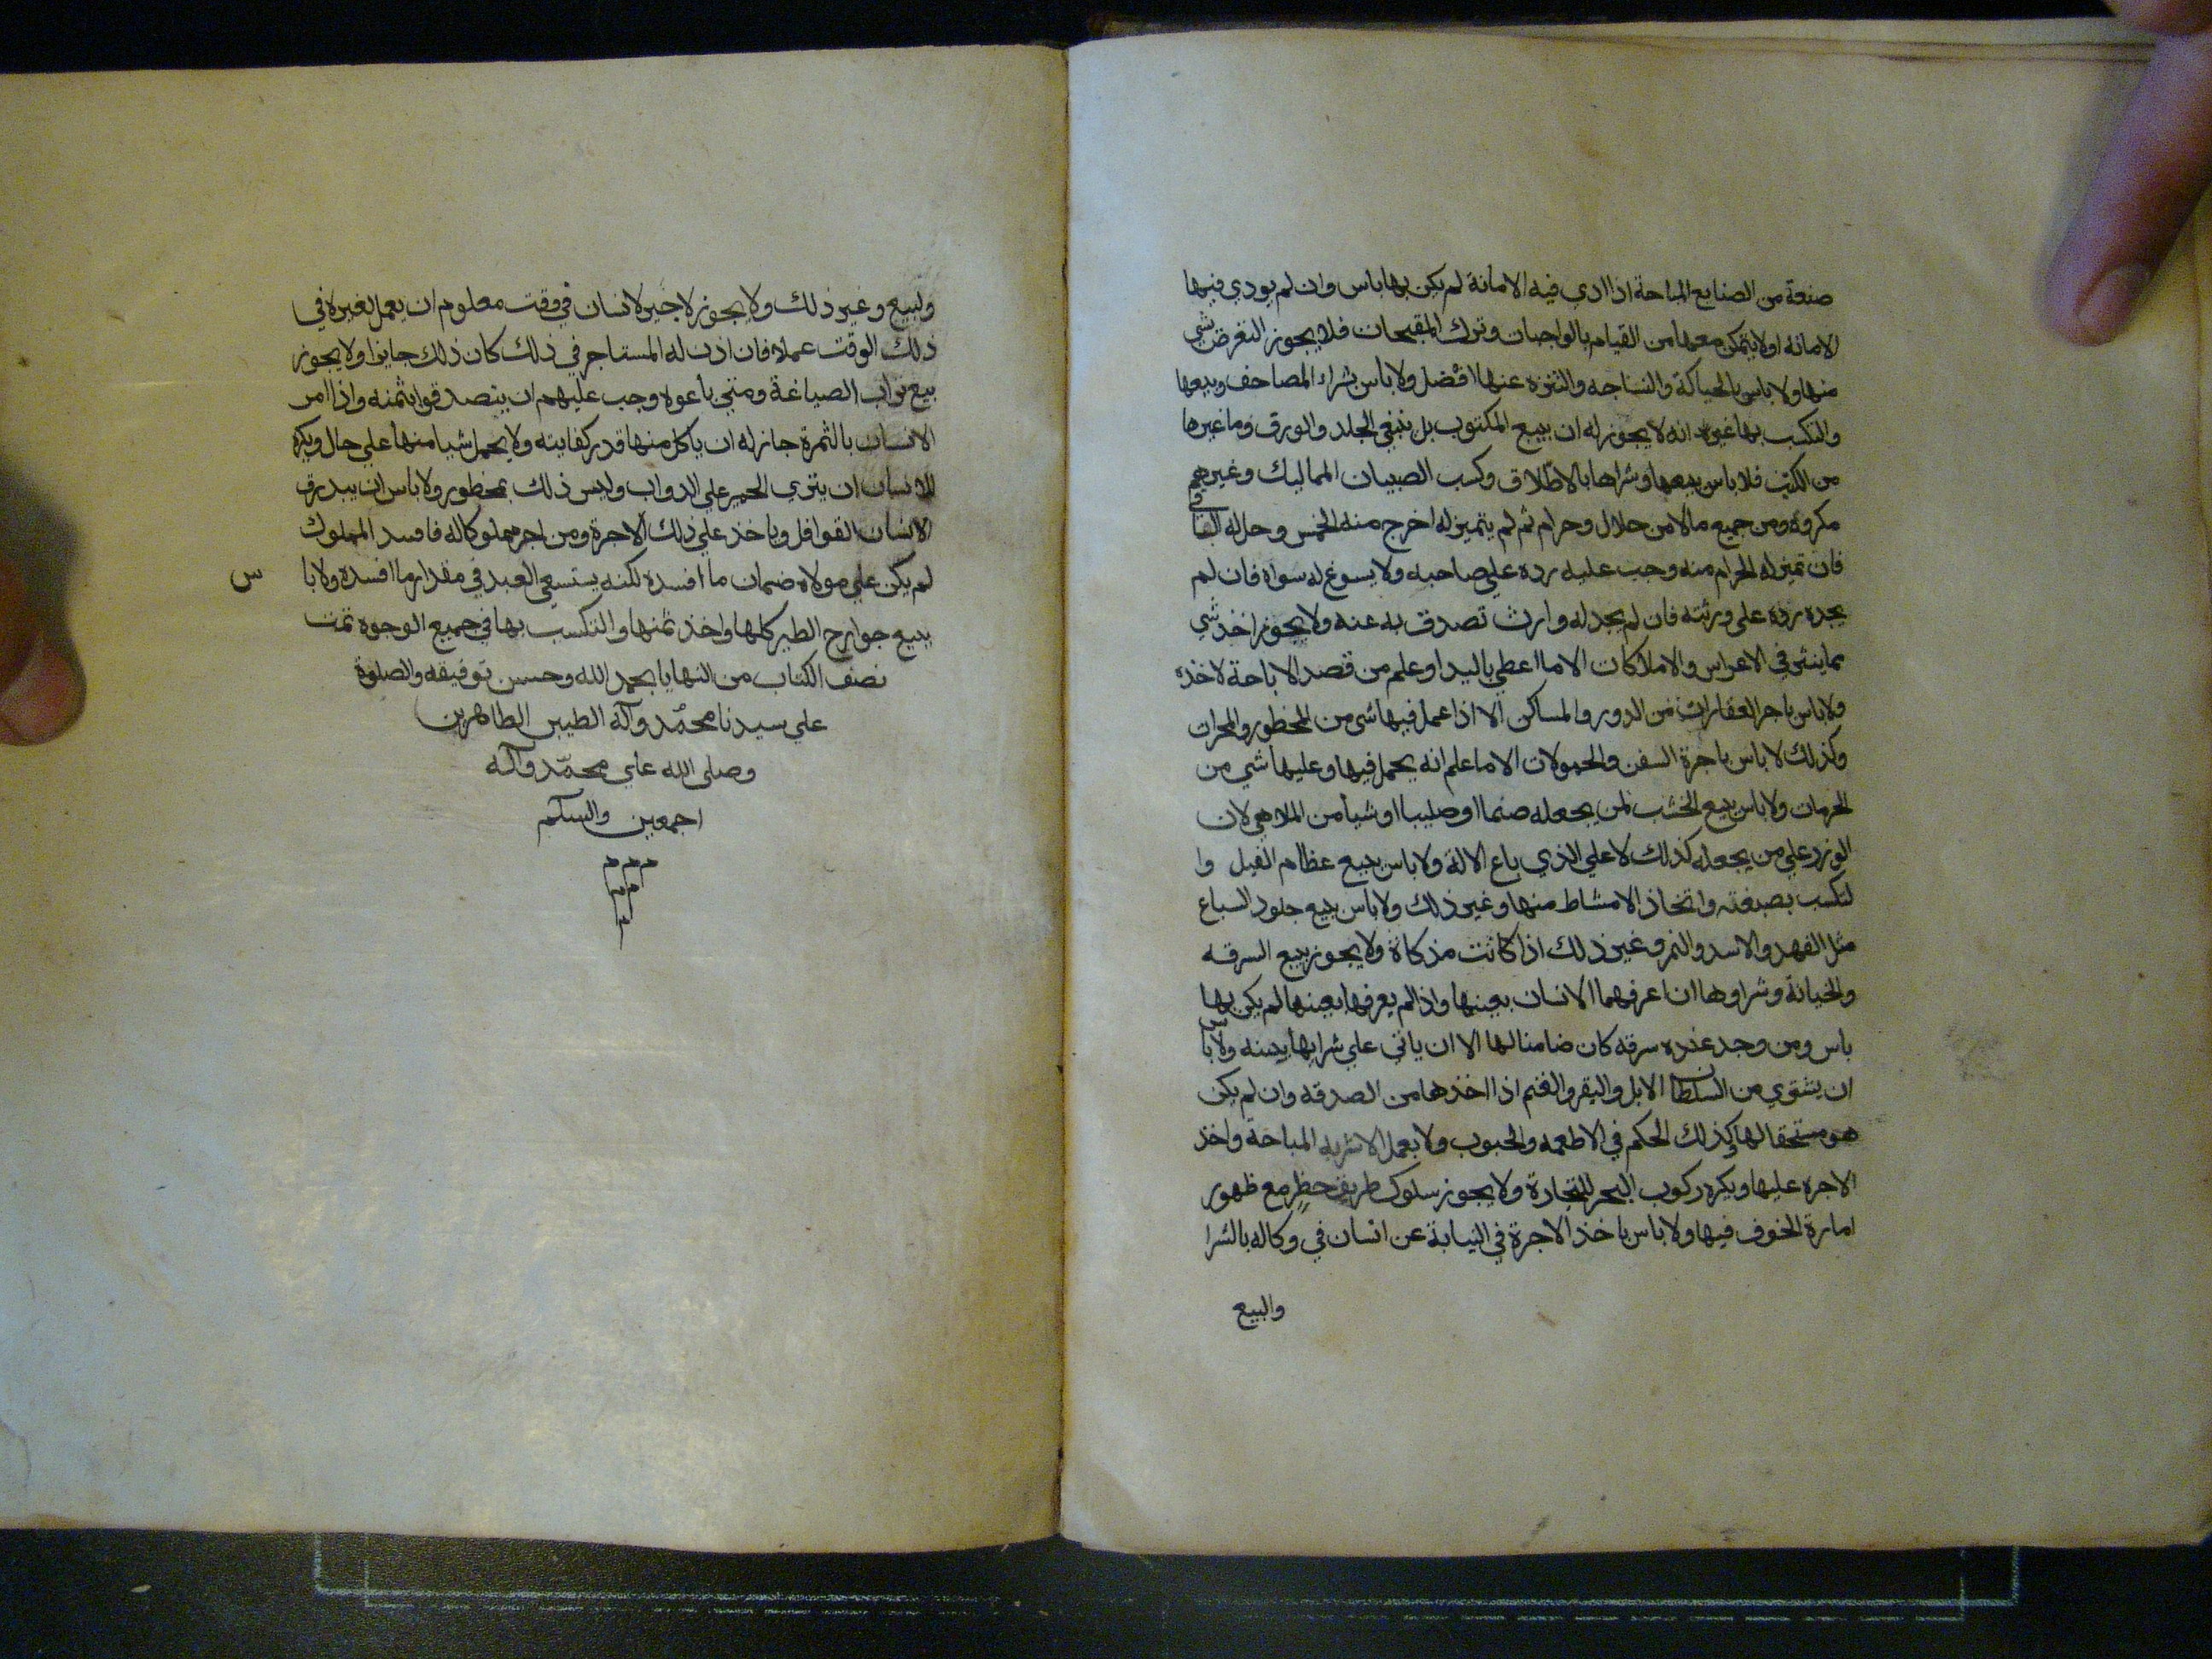 صنعة من الصنايع المباحة اذا ادي فيه الامانة لم يكن بها باس وان لم يودي فيها
الامانه او لا يتمكن معها من القيام بالواجبات وترك المقبحات فلا يجوز التعرض شي
منها ولا باس بالحياكة والنساجه والتنزه عنها افضل ولا بأس بشراء المصاحف وبيعها
والتكسب بها غير انه لا يجوز له ان يبيع المكتوب بل ينبغي الجلد والورق وما غيرها
من الكتب فلا باس ببيعها وشراها بالاطلاق وكسب الصبيان المماليك وغيرهم
مكروه ومن جميع مالا من حلال وحرام ثم لم يتميز له اخرج منه الخمس وحل له الباقي
فان تميز له الحرام منه وجب عليه رده علي صاحبه ولا يسوغ له سواه فان لم
يجده رده علي ورثته فان لم يجد له وارث تصدق به عنه ولا يجوز اخذ شي
مما ينثر في الاعراس والاملاكات الا ما اعطي باليد او علم من قصد الاباحة لاخذه
ولا باس باجر العقارات من الدور والمساكن الا اذا عمل فيها شي من المحظور والمحرات
وكذلك لا باس باجرة السفن والحمولات الا ما علم انه يحمل فيها وعليها شي من
الحرمات ولا باس ببيع الخشب لمن يجعله صنما او صليبا او شيأ من الملاهي لان
الوزر علي من يجعله كذلك لا علي الذي باع الالة ولا باس ببيع عظام الفيل وا
لتكسب بصنعته واتخاذ الامشاط منها وغير ذلك ولا باس ببيع جلود السباع
مثل الفهد والاسد والنمر وغير ذلك اذا كانت مذكاة ولا يجوز بيع السرقه
والخيانة وشراوها ان اعرفهما الانسان بعينها واذا لم يعرفها بعينها لم يكن بها
باس ومن وجد عنده سرقه كان ضامنا لها الا ان ياتي علي شرايها ببينه ولا باس
ان يشتري من السلطان الابل والبقر والغنم اذا اخذها من الصدقه وان لم يكن
هو مستحقا لها وكذلك الحكم في الاطعمه والحبوب ولا بعمل الاشربه المباحة واخذ
الاجره عليها ويكره ركوب البحر للتجارة ولا يجوز سلوك طريق خطر مع ظهور
امارة الخوف فيها ولا باس باخذ الاجرة في النيابة عن انسان في وكاله بالشرا
والبيع
ولبيع وغير ذلك ولا يجوز لاجير لانسان في وقت معلوم ان يعمل لغيره في
ذلك الوقت عملا فان اذن له المستاجر في ذلك كان ذلك جايزا ولا يجوز
بيع تراب الصياغة ومتي باعوه وجب عليهم ان يتصدقوا بثمنه واذا امر
الانسان بالثمرة جاز له ان ياكل منها قدر كفايته ولا يحمل شيا منها علي حال ويكره
للانسان ان ينزي الحمير علي الدواب وليس ذلك بمحظور ولا باس ان يبدرق
الانسان القوافل وياخذ علي ذلك الاجرة ومن اجر مملوكا له فافسد المملوك
لم يكن علي مولاه ضمان ما افسده لكنه يستسعي العبد في مقدار ما افسده ولا با س
ببيع جوارح الطير كلها واخذ ثمنها والتكسب بها في جميع الوجوه تمت
نصف الكتاب من النهايا بحمد الله وحسن توفيقه والصلوة
علي سيدنا محمد وآله الطيبين الطاهرين
وصلي الله علي محمد وآله
اجمعين والسلم